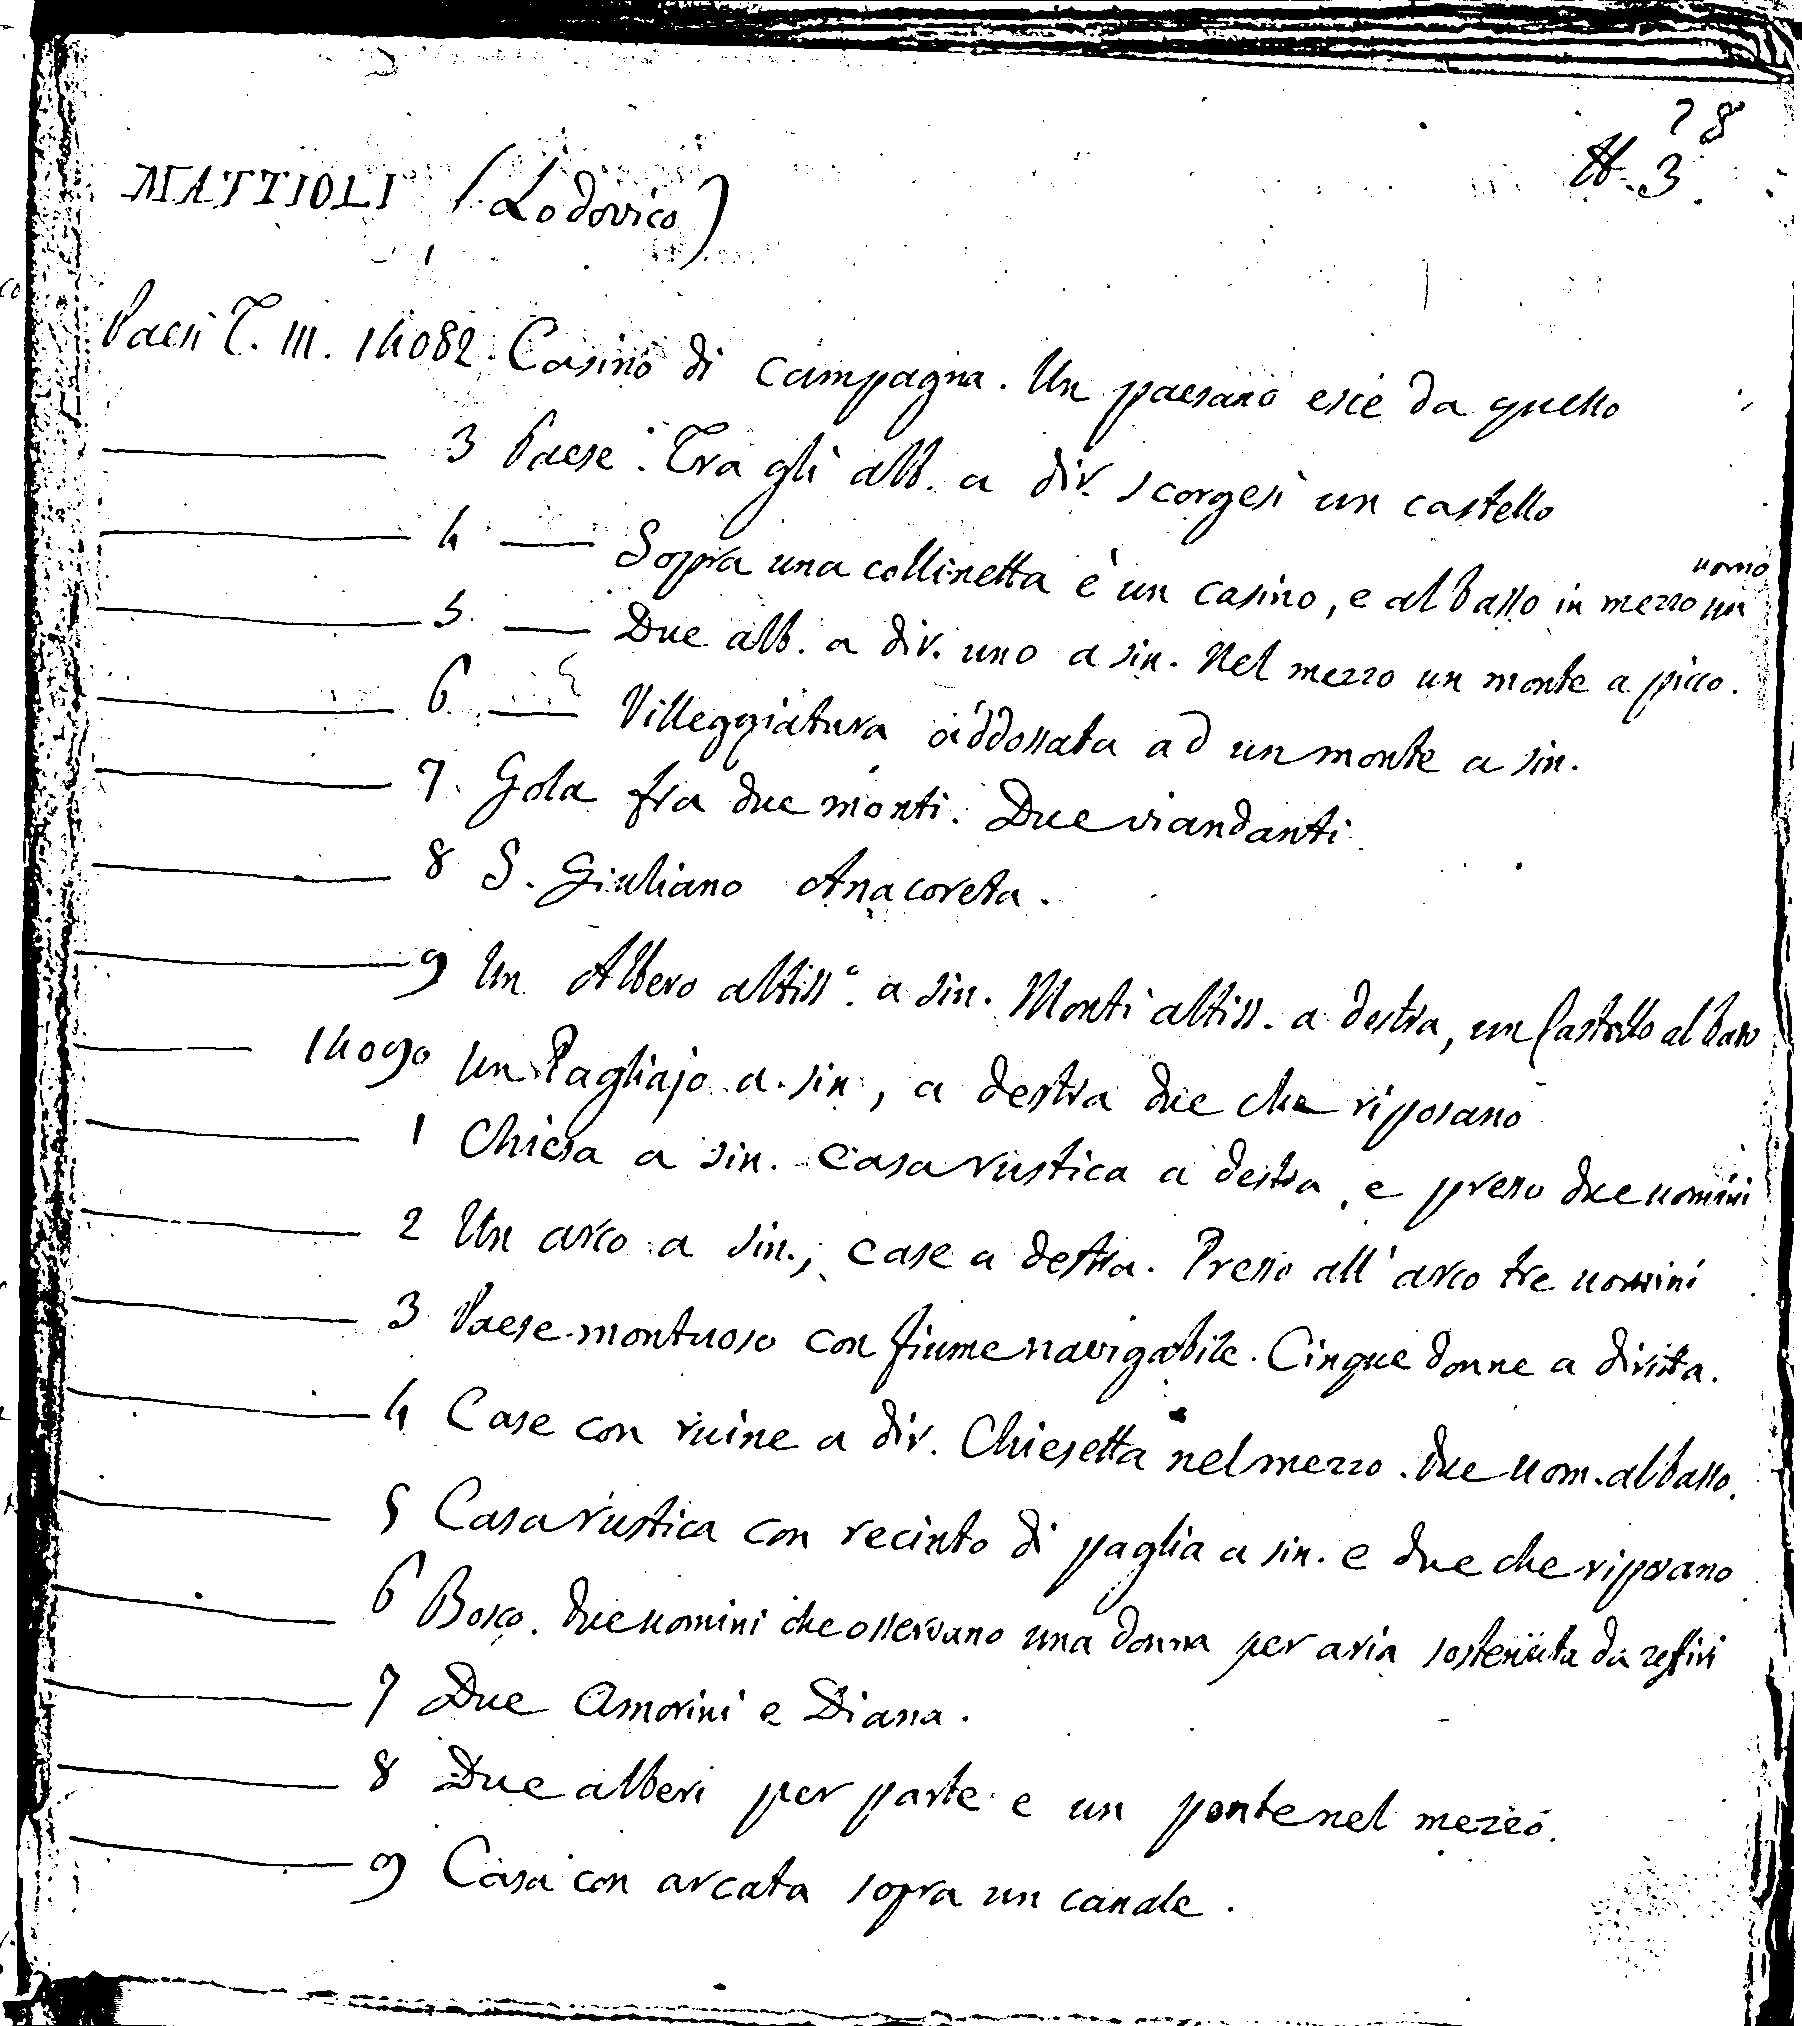 78
N. 3.
MATTIOLI (Lodovico)
Paesi T. III. 14082. Casino di campagna. Un paesano esce da quello
3 Paese. Tra gli alb. a dir. scorgesi un castello
4 — Sopra una collinetta è un casino, e al basso in mezzo un uomo
5. — Due alb. a dir. uno a sin. Nel mezzo un monte a picco.
6 — Villeggiatura addossata ad un monte a sin.
7. Gola fra due monti. Due viandanti
8 S. Giuliano Anacoreta.
9 Un Albero altiss.º a sin. Monti altiss. a destra, un Castello al basso
14090 Un Pagliajo a sin, a destra due che riposano
1 Chiesa a sin. Casa rustica a destra, e presso due uomini
2 Un arco a sin., case a destra. Presso all'arco tre uomini
3 Paese montuoso con fiume navigabile. Cinque donne a diritta.
4 Case con ruine a dir. Chiesetta nel mezzo. Due uom. al basso.
5 Casa rustica con recinto di paglia a sin. e due che riposano
6 Bosco. Due uomini che osservano una donna per aria sostenuta da zefiri
7 Due Amorini e Diana.
8 Due alberi per parte e un ponte nel mezzo.
9 Casa con arcata sopra un canale.